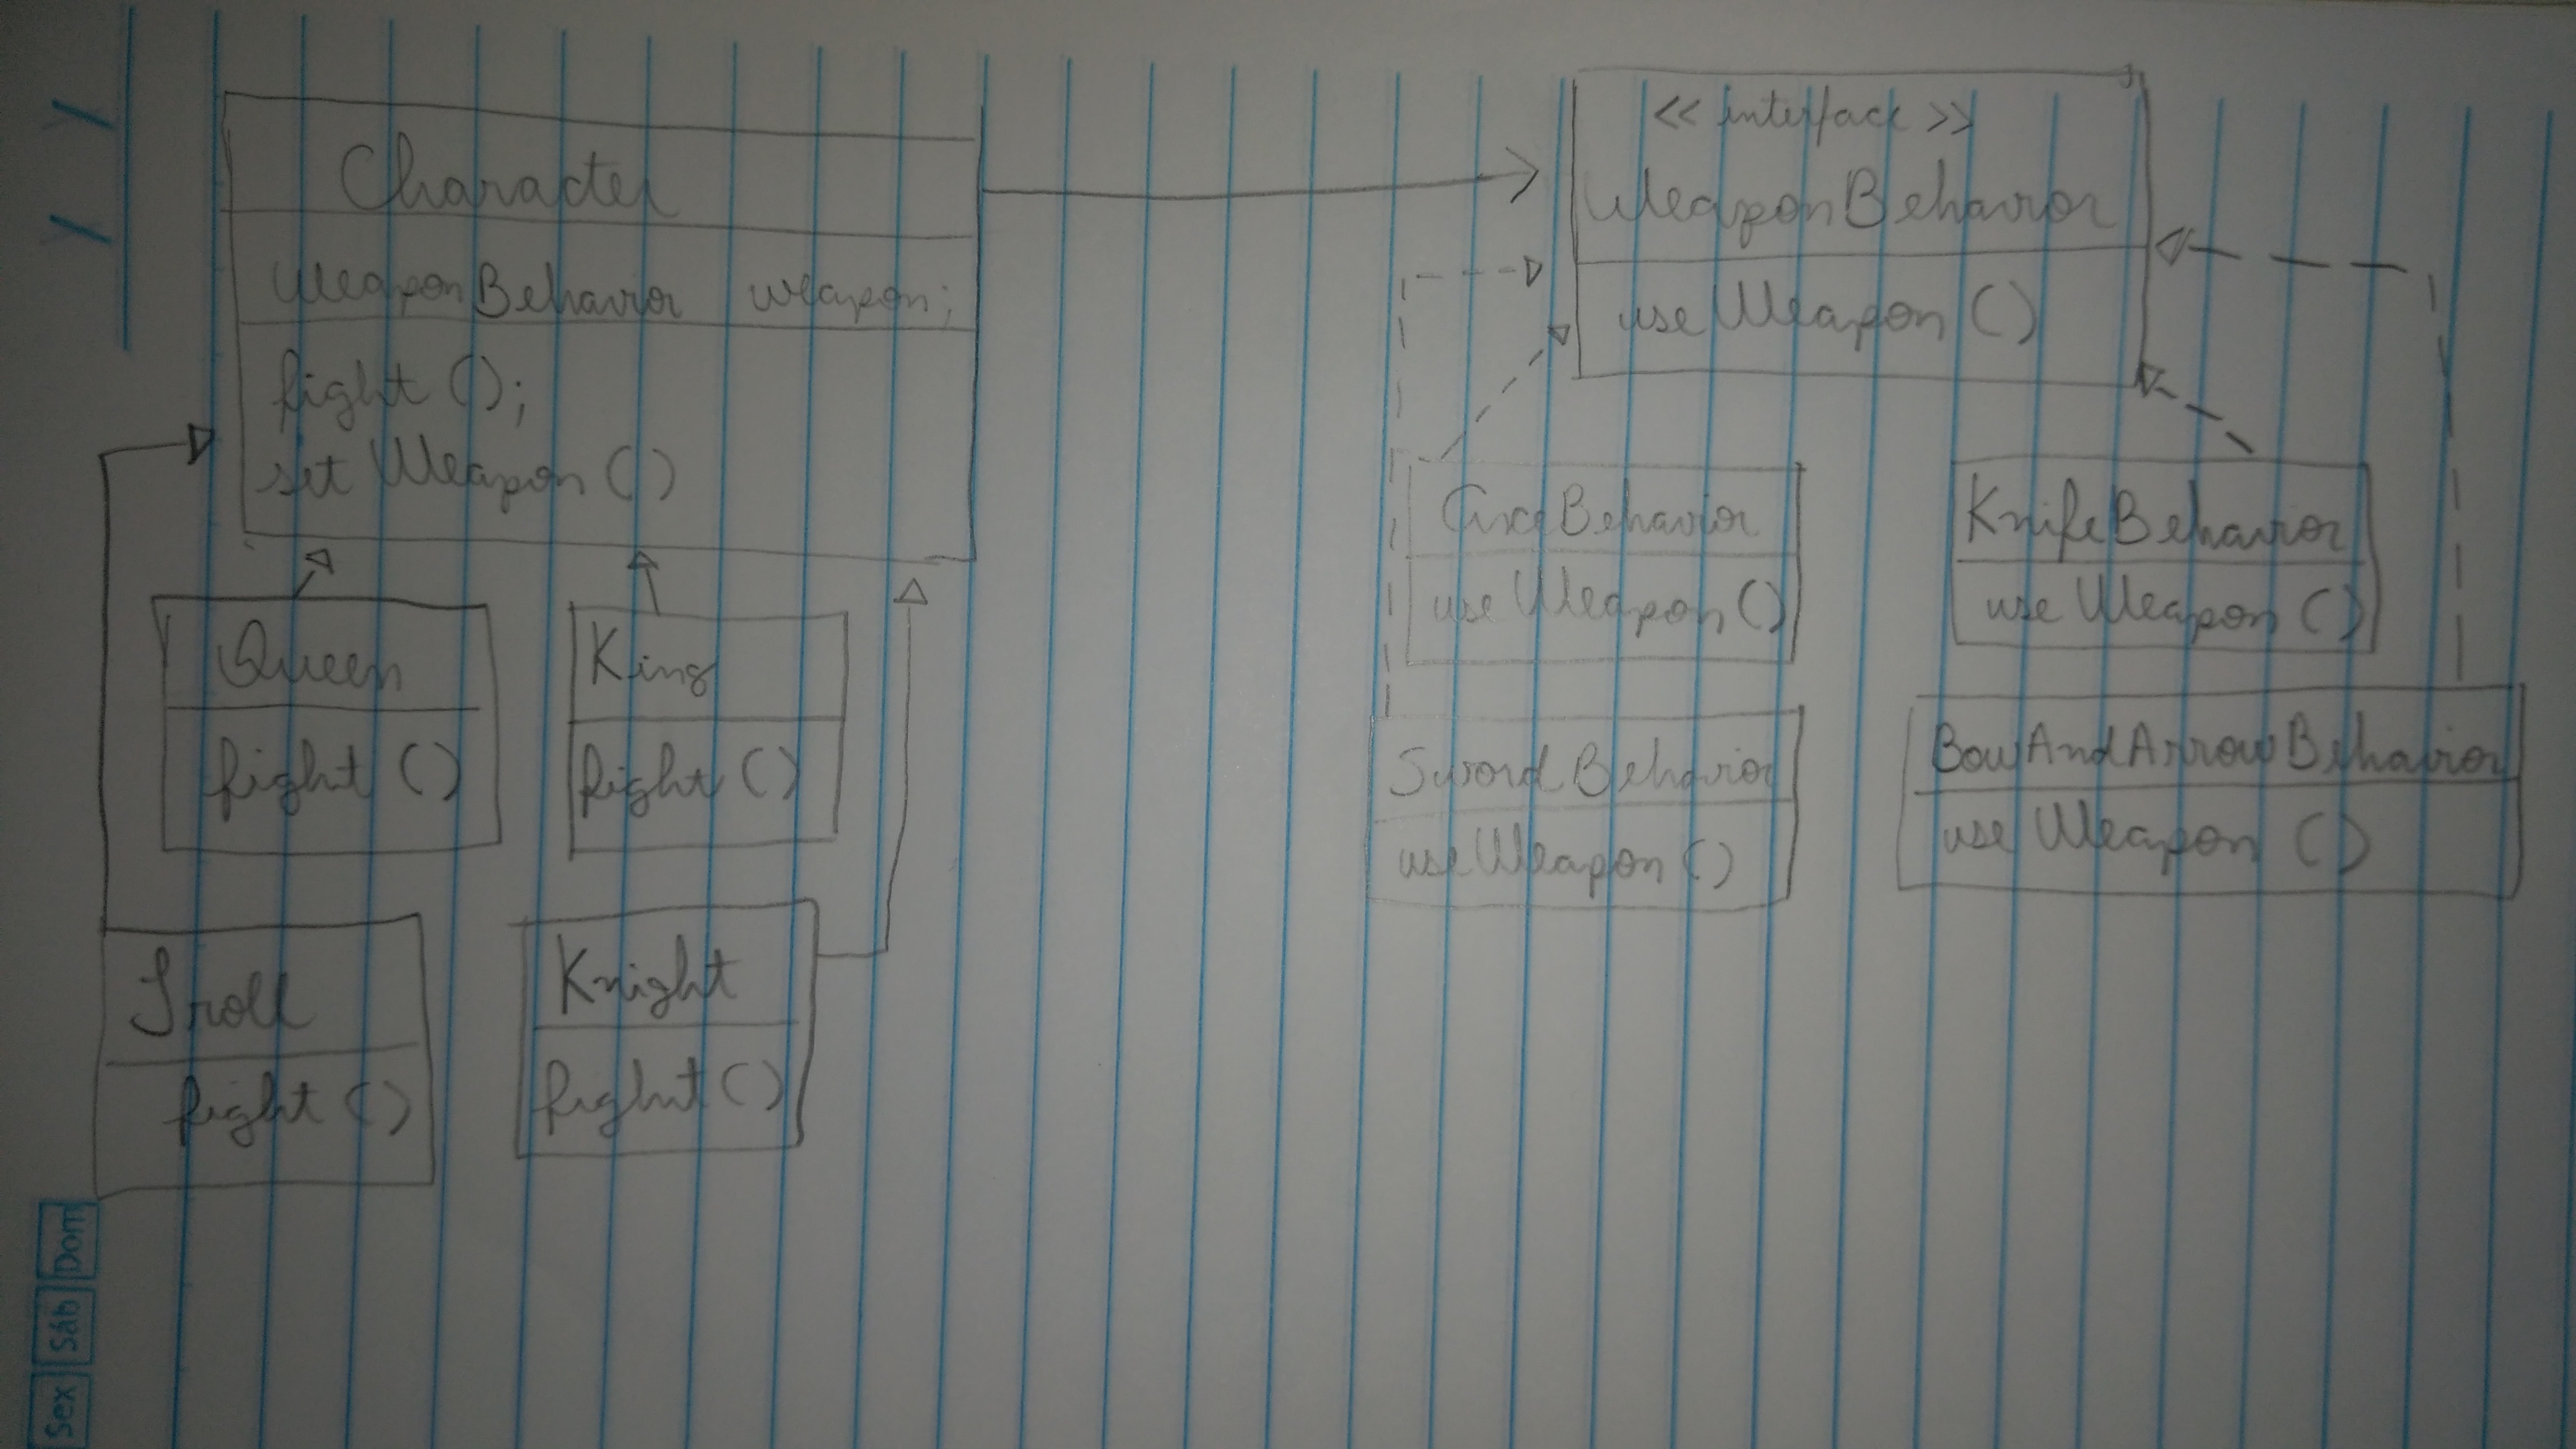 Character
WeaponBehavior weapon;
fight ();
set Weapon ()
Queen
fight ()
King
fight ()
Troll
fight ()
Knight
fight ()
<< interface >>
WeaponBehavior
use Weapon ()
AxeBehavior
use Weapon ()
KnifeBehavior
use Weapon ()
SwordBehavior
use Weapon ()
BowAndArrowBehavior
use Weapon ()
Sex Sáb Dom